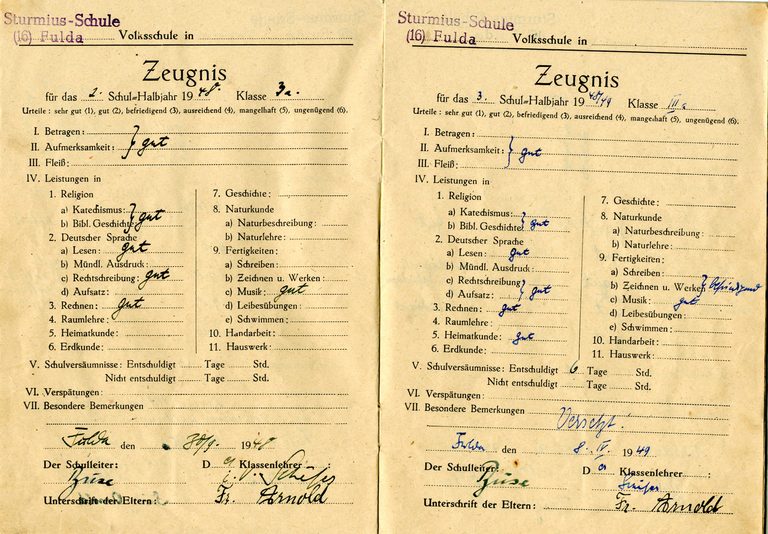 Sturmius-Schule
(16) Fulda Volksschule in
Zeugnis
für das 2. Schul=Halbjahr 1948. Klasse 3a.
Urteile: sehr gut (1), gut (2), befriedigend (3), ausreichend (4), mangelhaft (5), ungenügend (6).
I. Betragen:
II. Aufmerksamkeit: } gut
III. Fleiß:
IV. Leistungen in
1. Religion
a) Katechismus:
b) Bibl. Geschichte: } gut
2. Deutscher Sprache
a) Lesen: gut
b) Mündl. Ausdruck:
c) Rechtschreibung: gut
d) Aufsatz:
3. Rechnen: gut
4. Raumlehre:
5. Heimatkunde:
6. Erdkunde:
7. Geschichte:
8. Naturkunde
a) Naturbeschreibung:
b) Naturlehre:
9. Fertigkeiten:
a) Schreiben:
b) Zeichnen u. Werken:
c) Musik: gut
d) Leibesübungen:
e) Schwimmen:
10. Handarbeit:
11. Hauswerk:
V. Schulversäumnisse: Entschuldigt Tage Std.
Nicht entschuldigt Tage Std.
VI. Verspätungen:
VII. Besondere Bemerkungen
Fulda den 30/9. 1948
Der Schulleiter: D Klassenlehrer:
Unterschrift der Eltern: Fr. Arnold
Sturmius-Schule
(16) Fulda Volksschule in
Zeugnis
für das 3. Schul=Halbjahr 1948/49 Klasse III a
Urteile: sehr gut (1), gut (2), befriedigend (3), ausreichend (4), mangelhaft (5), ungenügend (6).
I. Betragen:
II. Aufmerksamkeit: } gut
III. Fleiß:
IV. Leistungen in
1. Religion
a) Katechismus:
b) Bibl. Geschichte: } gut
2. Deutscher Sprache
a) Lesen: gut
b) Mündl. Ausdruck:
c) Rechtschreibung:
d) Aufsatz: } gut
3. Rechnen: gut
4. Raumlehre:
5. Heimatkunde: gut
6. Erdkunde:
7. Geschichte:
8. Naturkunde
a) Naturbeschreibung:
b) Naturlehre:
9. Fertigkeiten:
a) Schreiben:
b) Zeichnen u. Werken: } befriedigend
c) Musik: gut
d) Leibesübungen:
e) Schwimmen:
10. Handarbeit:
11. Hauswerk:
V. Schulversäumnisse: Entschuldigt 6 Tage Std.
Nicht entschuldigt Tage Std.
VI. Verspätungen:
VII. Besondere Bemerkungen
Versetzt.
Fulda den 8. IV. 1949
Der Schulleiter: Der Klassenlehrer:
Unterschrift der Eltern: Fr. Arnold